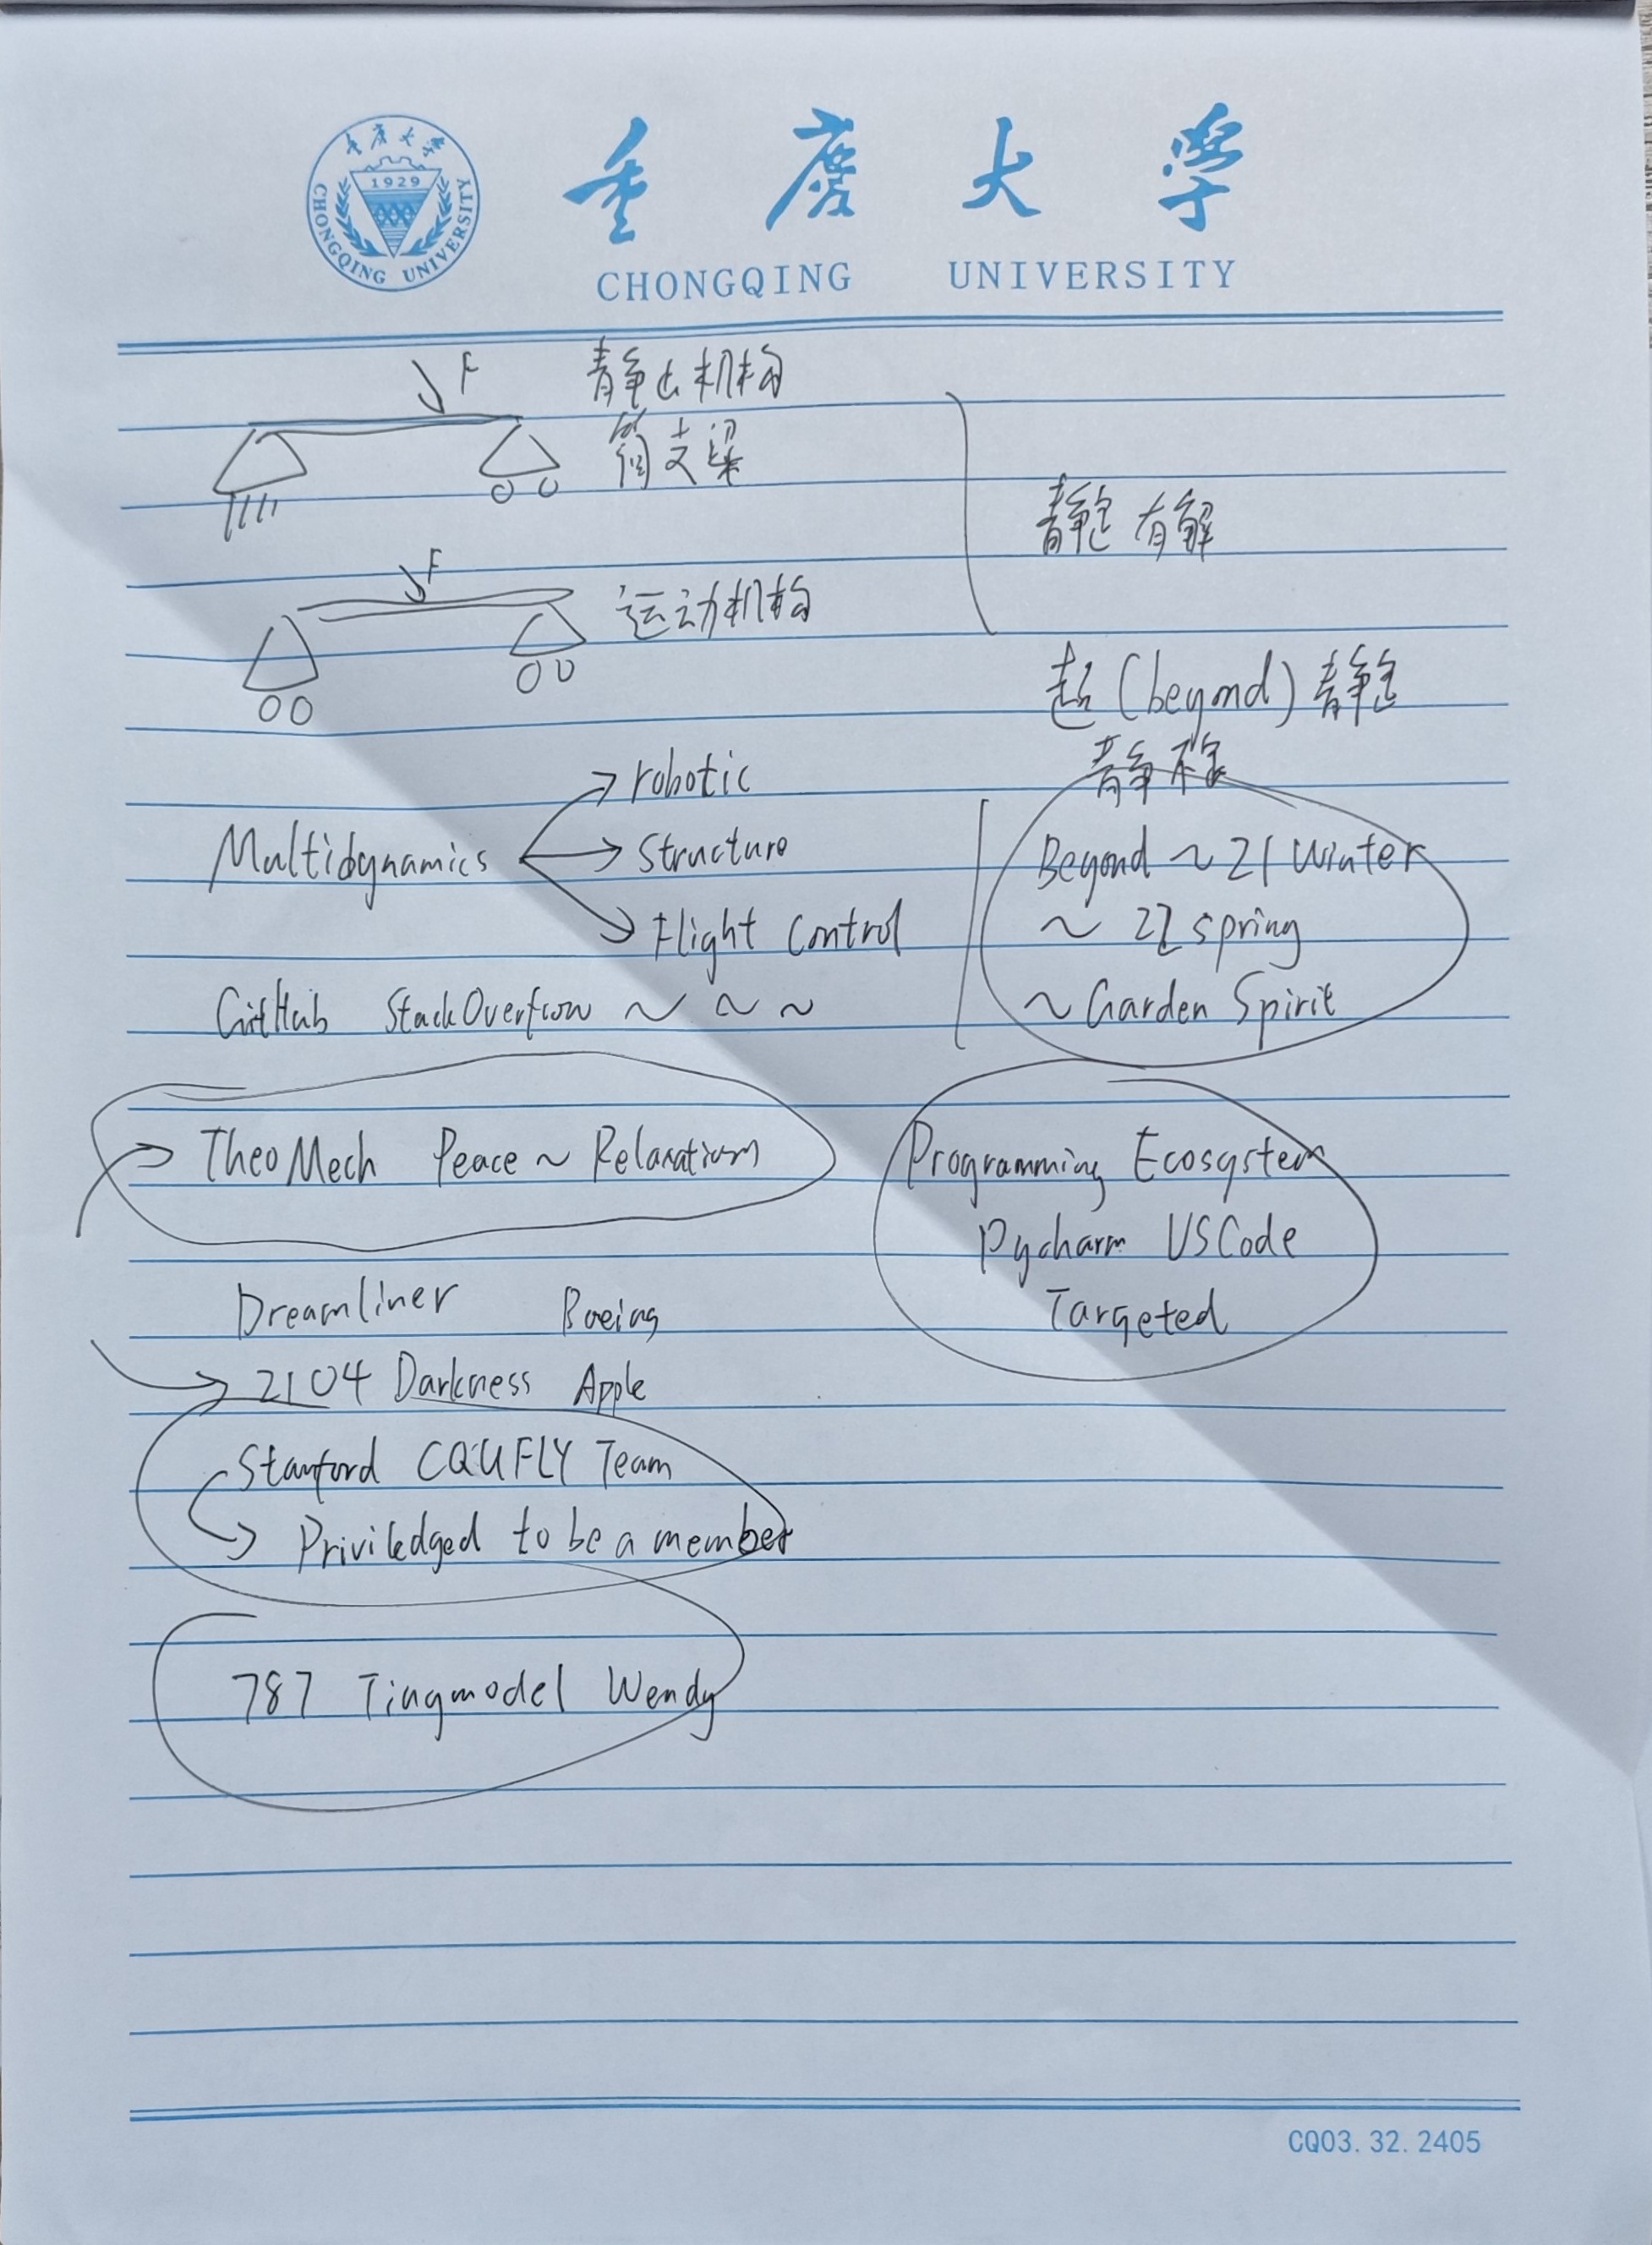 重庆大学
1929
CHONGQING UNIVERSITY
重庆大学
CHONGQING UNIVERSITY
F
静定机构
简支梁
静定 有解
F
运动机构
超(beyond)静定
静不定
robotic
Multidynamics
Structure
Flight Control
Beyond ~ 21 Winter
~ 22 spring
~ Garden Spirit
GitHub StackOverflow ~ ~ ~
TheoMech Peace ~ Relaxation
Programming Ecosystem
Pycharm VSCode
Targeted
Dreamliner Boeing
2104 Darkness Apple
Stanford CQUFLY Team
Priviledged to be a member
787 Tingmodel Wendy
CQ03.32.2405